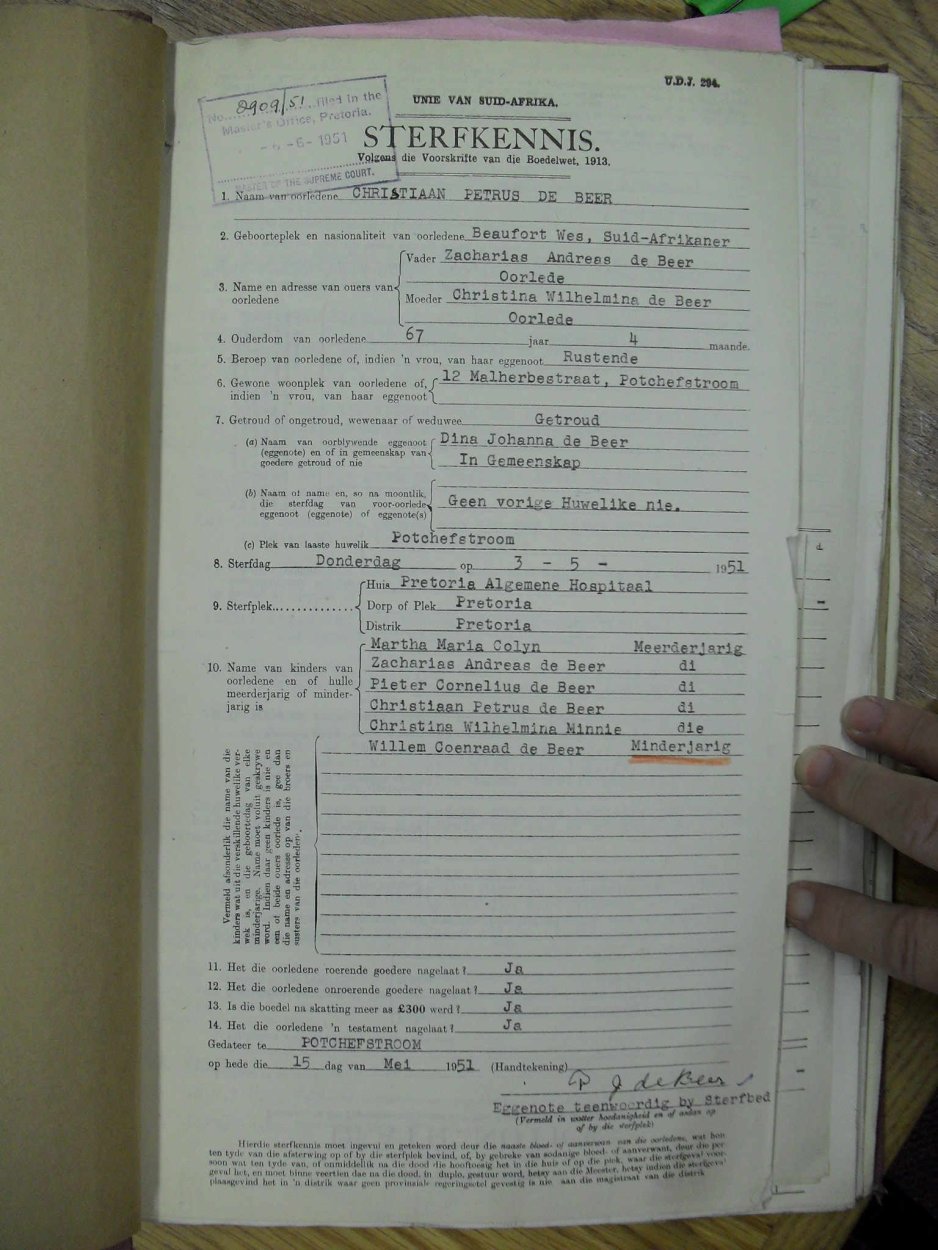 U.D.J. 294.
No. 8909/51 filed in the
Master's Office, Pretoria.
-6-6-1951
MASTER OF THE SUPREME COURT.
UNIE VAN SUID-AFRIKA.
STERFKENNIS.
Volgens die Voorskrifte van die Boedelwet, 1913.
1. Naam van oorledene CHRISTIAAN PETRUS DE BEER
2. Geboorteplek en nasionaliteit van oorledene Beaufort Wes, Suid-Afrikaner
3. Name en adresse van ouers van oorledene
Vader Zacharias Andreas de Beer
Oorlede
Moeder Christina Wilhelmina de Beer
Oorlede
4. Ouderdom van oorledene 67 jaar 4 maande.
5. Beroep van oorledene of, indien 'n vrou, van haar eggenoot Rustende
6. Gewone woonplek van oorledene of, 12 Malherbestraat, Potchefstroom
indien 'n vrou, van haar eggenoot
7. Getroud of ongetroud, wewenaar of weduwee Getroud
(a) Naam van oorblywende eggenoot Dina Johanna de Beer
(eggenote) en of in gemeenskap van
goedere getroud of nie In Gemeenskap
(b) Naam of name en, so na moontlik,
die sterfdag van voor-oorlede Geen vorige Huwelike nie.
eggenoot (eggenote) of eggenote(s)
(c) Plek van laaste huwelik Potchefstroom
8. Sterfdag Donderdag op 3 - 5 - 1951
9. Sterfplek
Huis Pretoria Algemene Hospitaal
Dorp of Plek Pretoria
Distrik Pretoria
10. Name van kinders van
oorledene en of hulle
meerderjarig of minder-
jarig is
Martha Maria Colyn Meerderjarig
Zacharias Andreas de Beer di
Pieter Cornelius de Beer di
Christiaan Petrus de Beer di
Christina Wilhelmina Minnie die
Willem Coenraad de Beer Minderjarig
Vermeld afsonderlik die name van die
kinders wat uit die verskillende huwelike ver-
wek is, en die geboortedag van elke
minderjarige. Name moet voluit geskrywe
word. Indien daar geen kinders is nie en
een of beide ouers oorlede is, gee dan
die name en adresse op van die broers en
susters van die oorledene.
11. Het die oorledene roerende goedere nagelaat? Ja
12. Het die oorledene onroerende goedere nagelaat? Ja
13. Is die boedel na skatting meer as £300 werd? Ja
14. Het die oorledene 'n testament nagelaat? Ja
Gedateer te POTCHEFSTROOM
op hede die 15 dag van Mei 1951 (Handtekening)
P J de Beer
Eggenote teenwoordig by Sterfbed
(Vermeld in watter hoedanigheid en of andan op
of by die sterfplek)
Hierdie sterfkennis moet ingevul en geteken word deur die naaste bloed- of aanverwan van die oorledene, wat hon
ten tyde van die afsterwing op of by die sterfplek bevind, of, by gebreke van sodanige bloed- of aanverwant, deur die per
soon wat ten tyde van, of onmiddellik na die dood die hooftoesig het in die huis of op die plek, waar die sterfgeval voor-
geval het, en moet binne veertien dae na die dood, in duplo, gestuur word, hetsy aan die Meester, hetsy indien die sterfgeval
plaasgevind het in 'n distrik waar geen provinsiale regeringsetel gevestig is nie aan die magistraat van die distrik